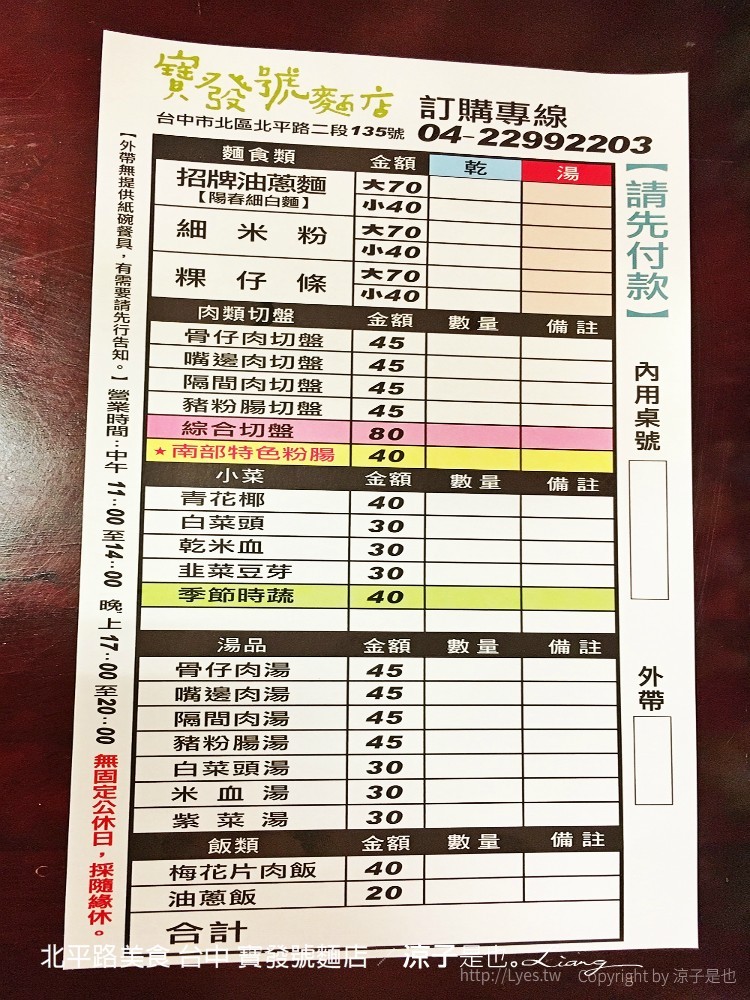 寶發號麵店
訂購專線
台中市北區北平路二段135號 04-22992203
麵食類 金額 乾 湯
招牌油蔥麵 大70
【陽春細白麵】 小40
細米粉 大70
小40
粿仔條 大70
小40
肉類切盤 金額 數量 備註
骨仔肉切盤 45
嘴邊肉切盤 45
隔間肉切盤 45
豬粉腸切盤 45
綜合切盤 80
★南部特色粉腸 40
小菜 金額 數量 備註
青花椰 40
白菜頭 30
乾米血 30
韭菜豆芽 30
季節時蔬 40
湯品 金額 數量 備註
骨仔肉湯 45
嘴邊肉湯 45
隔間肉湯 45
豬粉腸湯 45
白菜頭湯 30
米血湯 30
紫菜湯 30
飯類 金額 數量 備註
梅花片肉飯 40
油蔥飯 20
合計
【請先付款】
內用桌號
外帶
【外帶無提供紙碗餐具，有需要請先行告知。】營業時間：中午 11：00至14：00 晚上17：00至20：00 無固定公休日，採隨緣休。
北平路美食 台中 寶發號麵店 ／ 涼子是也。Liang
http://Lyes.tw Copyright by 涼子是也